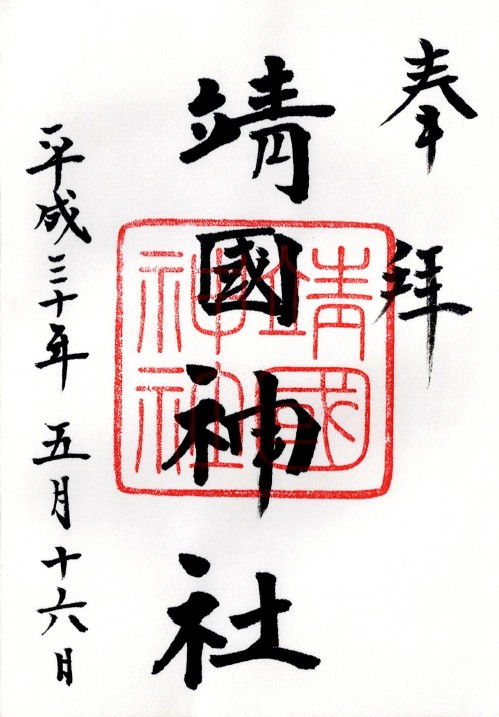 奉拝
靖國神社
靖國神社
平成三十年五月十六日